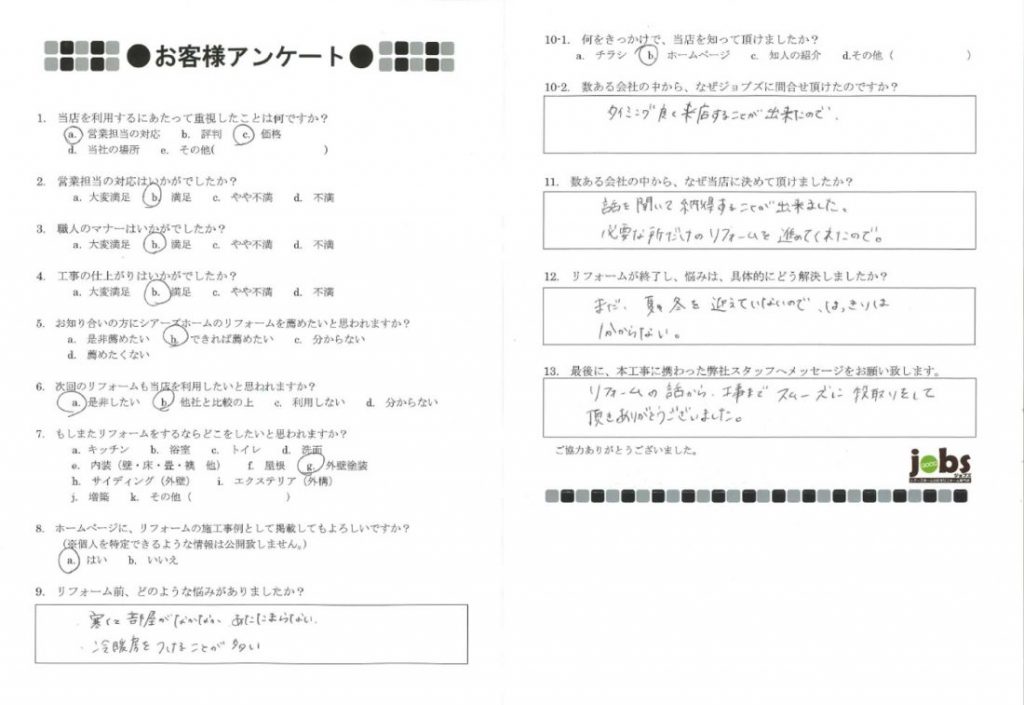 ●お客様アンケート●
1. 当店を利用するにあたって重視したことは何ですか？
a. 営業担当の対応 b. 評判 c. 価格
d. 当社の場所 e. その他( )
2. 営業担当の対応はいかがでしたか？
a. 大変満足 b. 満足 c. やや不満 d. 不満
3. 職人のマナーはいかがでしたか？
a. 大変満足 b. 満足 c. やや不満 d. 不満
4. 工事の仕上がりはいかがでしたか？
a. 大変満足 b. 満足 c. やや不満 d. 不満
5. お知り合いの方にシアーズホームのリフォームを薦めたいと思われますか？
a. 是非薦めたい b. できれば薦めたい c. 分からない
d. 薦めたくない
6. 次回のリフォームも当店を利用したいと思われますか？
a. 是非したい b. 他社と比較の上 c. 利用しない d. 分からない
7. もしまたリフォームをするならどこをしたいと思われますか？
a. キッチン b. 浴室 c. トイレ d. 洗面
e. 内装（壁・床・畳・襖 他） f. 屋根 g. 外壁塗装
h. サイディング（外壁） i. エクステリア（外構）
j. 増築 k. その他（ ）
8. ホームページに、リフォームの施工事例として掲載してもよろしいですか？
（※個人を特定できるような情報は公開致しません。）
a. はい b. いいえ
9. リフォーム前、どのような悩みがありましたか？
・寒くて部屋がなかなか あたたまらない.
・冷暖房をつけることが多い
10-1. 何をきっかけで、当店を知って頂けましたか？
a. チラシ b. ホームページ c. 知人の紹介 d.その他（ ）
10-2. 数ある会社の中から、なぜジョブズに問合せ頂けたのですか？
タイミング良く来店することが出来たので.
11. 数ある会社の中から、なぜ当店に決めて頂けましたか？
話を聞いて納得することが出来ました。
必要な所だけのリフォームを進めてくれたので。
12. リフォームが終了し、悩みは、具体的にどう解決しましたか？
まだ、夏・冬を迎えていないので、はっきりは
分からない。
13. 最後に、本工事に携わった弊社スタッフへメッセージをお願い致します。
リフォームの話から、工事までスムーズに段取りをして
頂きありがとうございました。
ご協力ありがとうございました。
jobs
GOOD
ジョブズ